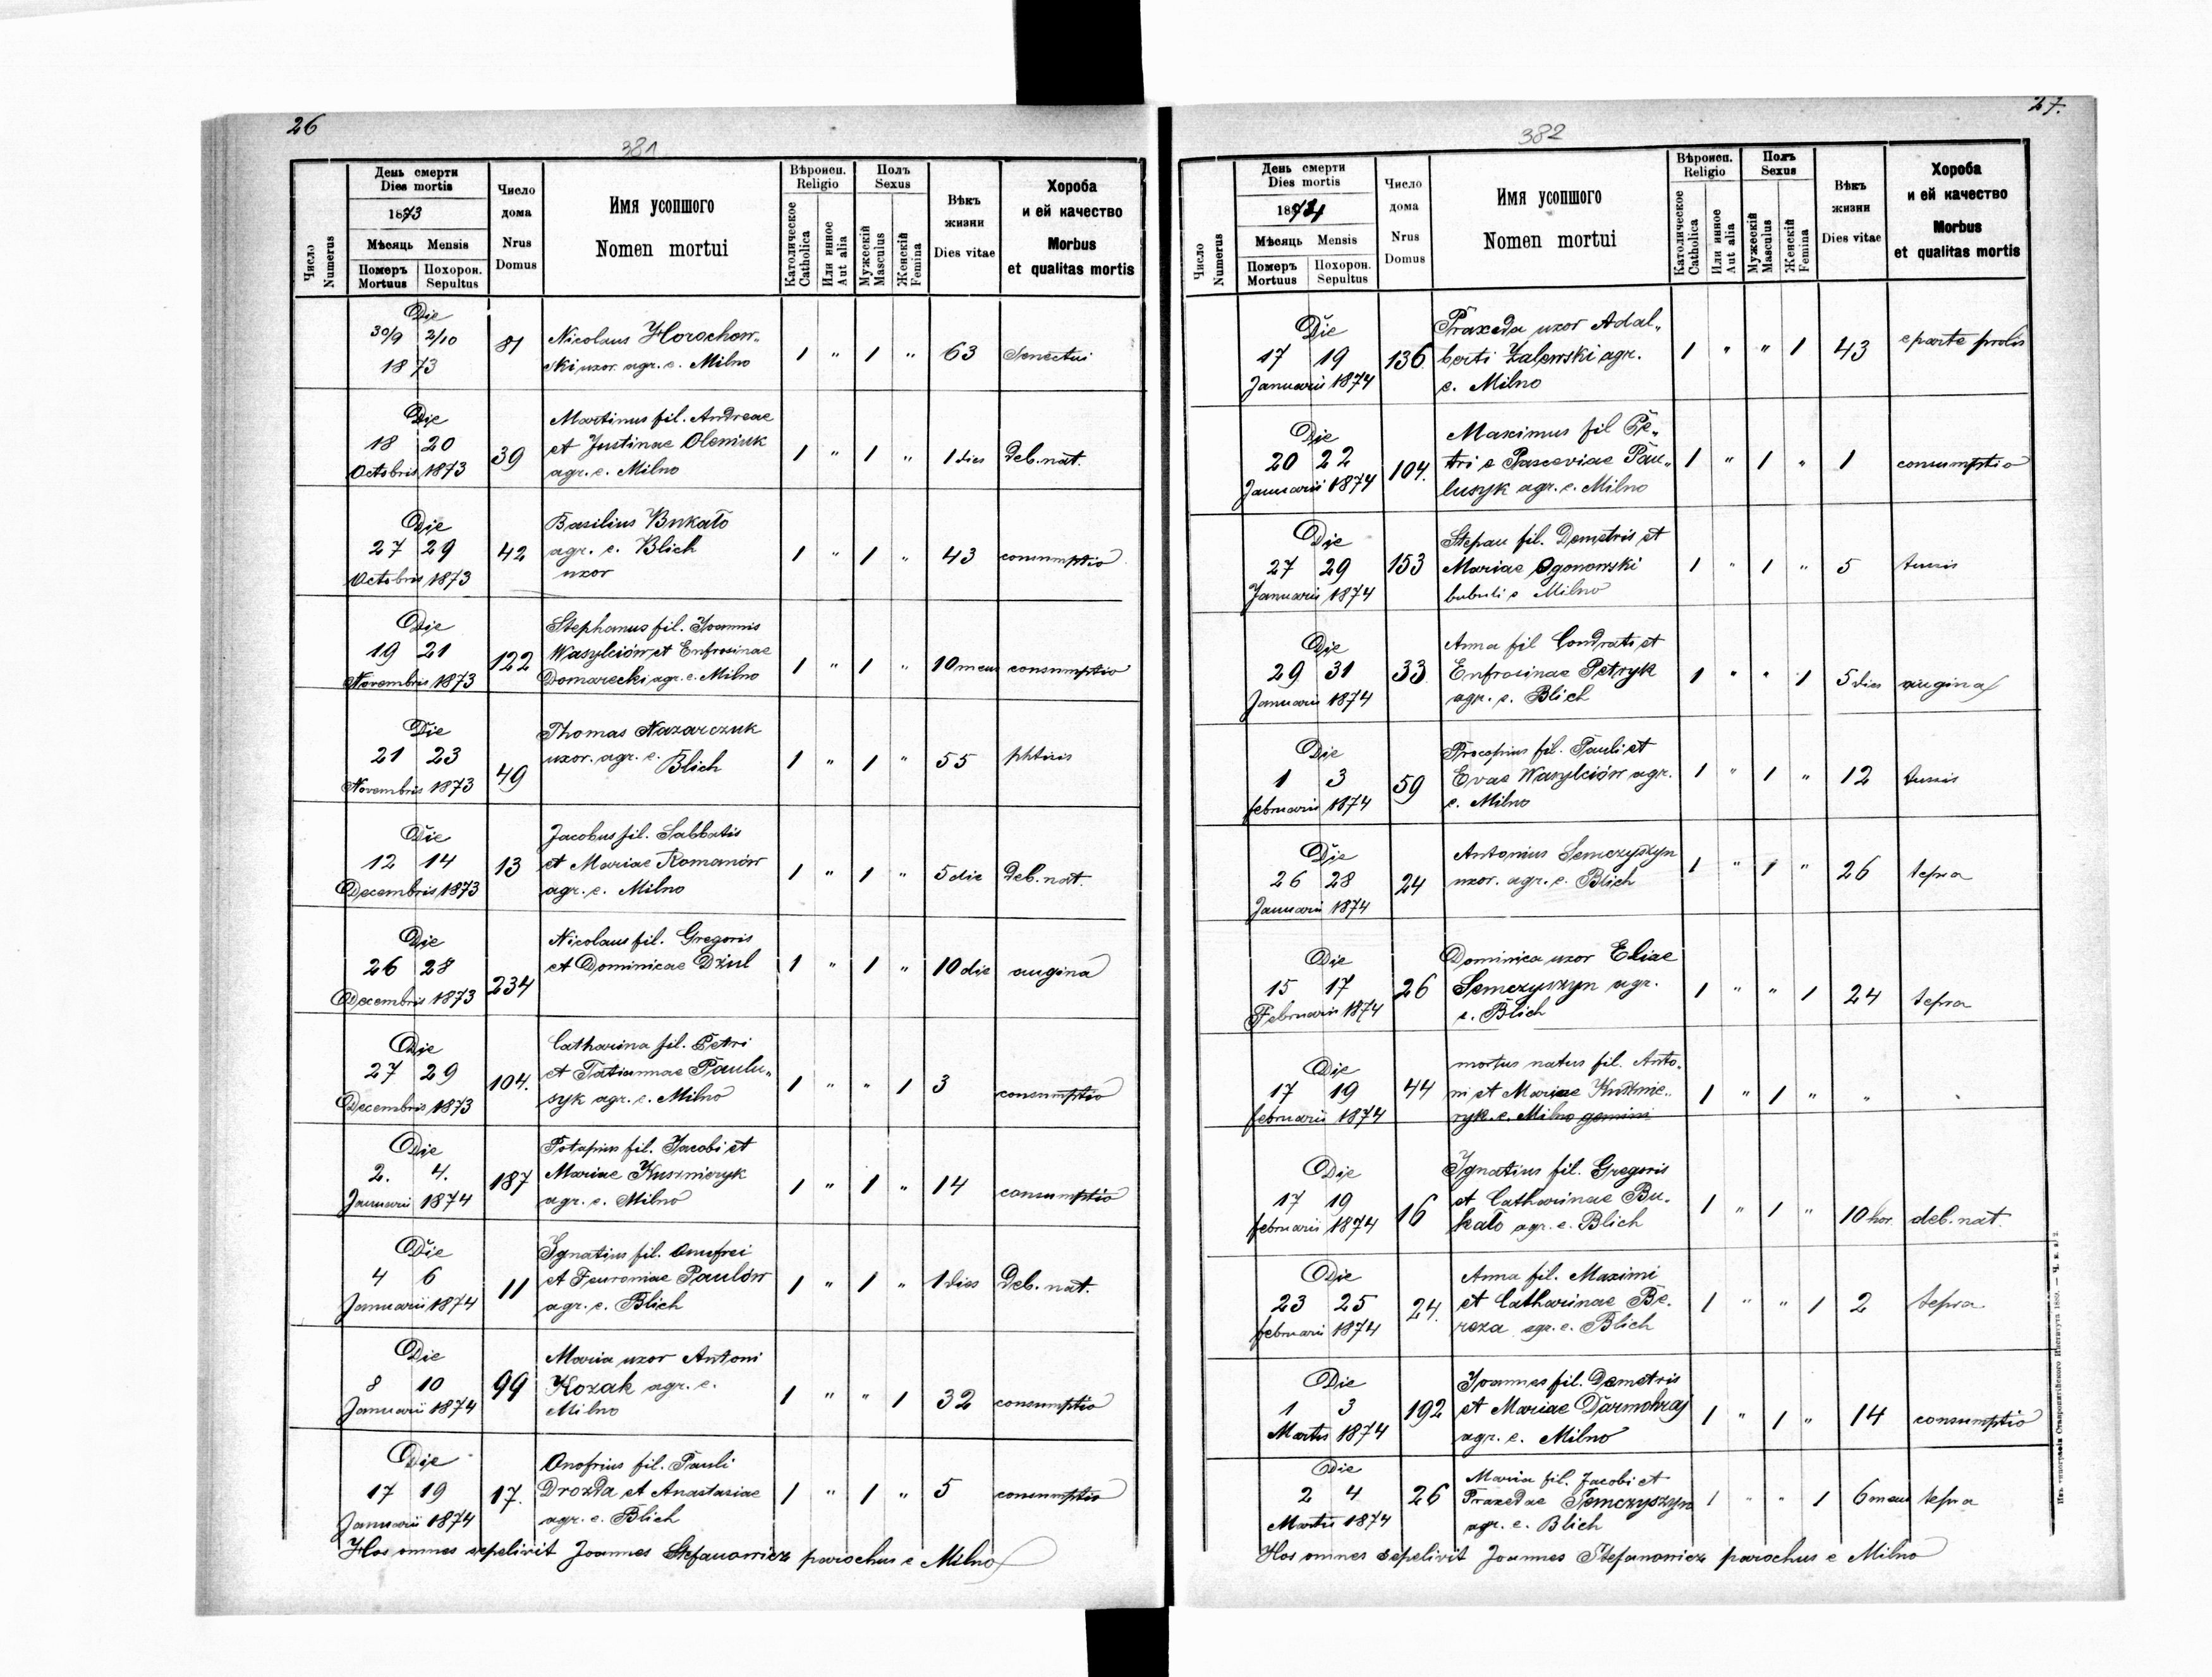 26
381
Число
Numerus
День смерти
Dies mortis
1873
Мѣсяць Mensis
Померъ Похорон.
Mortuus Sepultus
Число
дома
Nrus
Domus
Имя усопшого
Nomen mortui
Вѣроисп.
Religio
Католическое
Catholica
Или инное
Aut alia
Полъ
Sexus
Мужескій
Masculus
Женскій
Femina
Вѣкъ
жизни
Dies vitae
Хороба
и ей качество
Morbus
et qualitas mortis
Die
30/9 2/10
1873
81
Nicolaus Horochow„
ski uxor. agr. e. Milno
1 " 1 " 63 Senectui
Die
18 20
Octobris 1873
39
Martinus fil. Andreae
et Justinae Oleniuk
agr. e. Milno
1 " 1 " 1 dies Deb. nat.
Die
27 29
Octobris 1873
42
Basilius Bukało
agr. e. Blich
uxor
1 " 1 " 43 consumptio
Die
19 21
Novembris 1873
122
Stephanus fil. Joannis
Wasylciów et Eufrosinae
Domarecki agr. e. Milno
1 " 1 " 10 mens consumptio
Die
21 23
Novembris 1873
49
Thomas Nazarczuk
uxor. agr. e. Blich
1 " 1 " 55 phtisis
Die
12 14
Decembris 1873
13
Jacobus fil. Sabbatis
et Mariae Romanów
agr. e. Milno
1 " 1 " 5 die Deb. nat.
Die
26 28
Decembris 1873
234
Nicolaus fil. Gregoris
et Dominicae Dziul
1 " 1 " 10 die augina
Die
27 29
Decembris 1873
104.
Catharina fil. Petri
et Tatiannae Paulu„
syk agr. e. Milno
1 " " 1 3 consumptio
Die
2. 4.
Januarii 1874
187
Potapius fil. Jacobi et
Mariae Kusznieryk
agr. e. Milno
1 " 1 " 14 consumptio
Die
4 6
Januarii 1874
11
Ignatius fil. Onufrei
et Feuroniae Paulów
agr. e. Blich
1 " 1 " 1 dies Deb. nat.
Die
8 10
Januarii 1874
99
Maria uxor Antoni
Kozak agr. e.
Milno
1 " " 1 32 consumptio
Die
17 19
Januarii 1874
17.
Onofrius fil. Pauli
Drozda et Anastasiae
agr. e. Blich
1 " 1 " 5 consumptio
Hos omnes sepelivit Joannes Stefanowicz parochus e Milno
27.
382
Число
Numerus
День смерти
Dies mortis
1874
Мѣсяць Mensis
Померъ Похорон.
Mortuus Sepultus
Число
дома
Nrus
Domus
Имя усопшого
Nomen mortui
Вѣроисп.
Religio
Католическое
Catholica
Или инное
Aut alia
Полъ
Sexus
Мужескій
Masculus
Женскій
Femina
Вѣкъ
жизни
Dies vitae
Хороба
и ей качество
Morbus
et qualitas mortis
Die
17 19
Januarii 1874
136
Praxeda uxor Adal„
berti Zalewski agr.
e. Milno
1 " " 1 43 e parte prolis
Die
20 22
Januarii 1874
104.
Maximus fil Pe„
tri e Pasceviae Pau„
lusyk agr. e. Milno
1 " 1 " 1 consumptio
Die
27 29
Januarii 1874
153
Stepan fil. Demetris et
Mariae Ogonowski
bubuli e Milno
1 " 1 " 5 tussis
Die
29 31
Januarii 1874
33
Anna fil Condrati et
Eufrosinae Petryk
agr. e. Blich
1 " " 1 5 dies augina
Die
1 3
februarii 1874
59
Procopius fil. Pauli et
Evae Wasylciów agr.
e. Milno
1 " 1 " 12 tussis
Die
26 28
Januarii 1874
24
Antonius Semczyszyn
uxor. agr. e. Blich
1 " 1 " 26 tepra
Die
15 17
Februarii 1874
26
Dominica uxor Eliae
Semczyszyn agr.
e. Blich
1 " " 1 24 tepra
Die
17 19
februarii 1874
44
mortus natus fil. Anto„
ni et Mariae Kusznie„
ryk. e. Milno gemini
1 " 1 " "
Die
17 19
februarii 1874
16
Ignatius fil. Gregoris
et Catharinae Bu„
kało agr. e. Blich
1 " 1 " 10 hor. deb. nat.
Die
23 25
februarii 1874
24.
Anna fil. Maximi
et Catharinae Be„
reza agr. e. Blich
1 " " 1 2 tepra
Die
1 3
Martis 1874
192
Joannes fil. Demetris
et Mariae Darmohraj
agr. e. Milno
1 " 1 " 14 consumptio
Die
2 4
Martis 1874
26
Maria fil. Jacobi et
Praxedae Semczyszyn
agr. e. Blich
1 " " 1 6 mens tepra
Hos omnes sepelivit Joannes Stefanowicz parochus e Milno